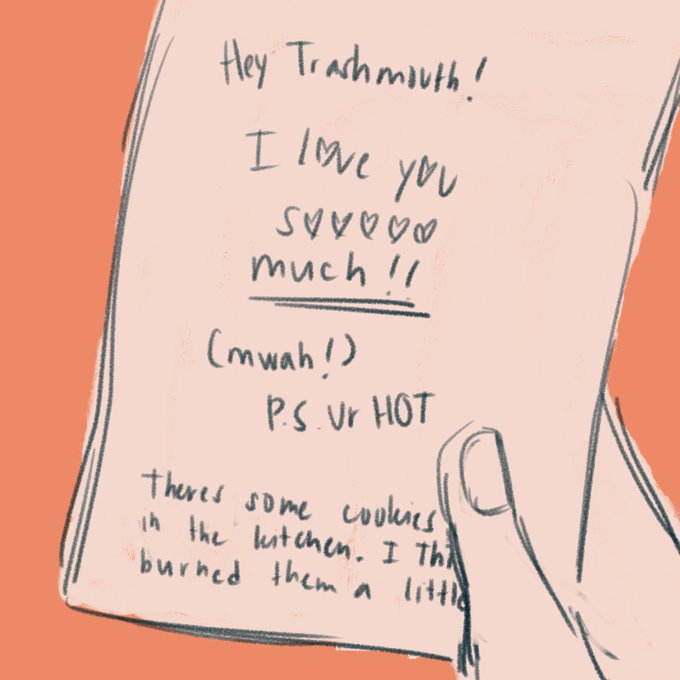 Hey Trashmouth!
I love you
s♡♡♡♡♡
much!!
(mwah!)
P.S. Ur HOT
Theres some cookies
in the kitchen. I Thi
burned them a little